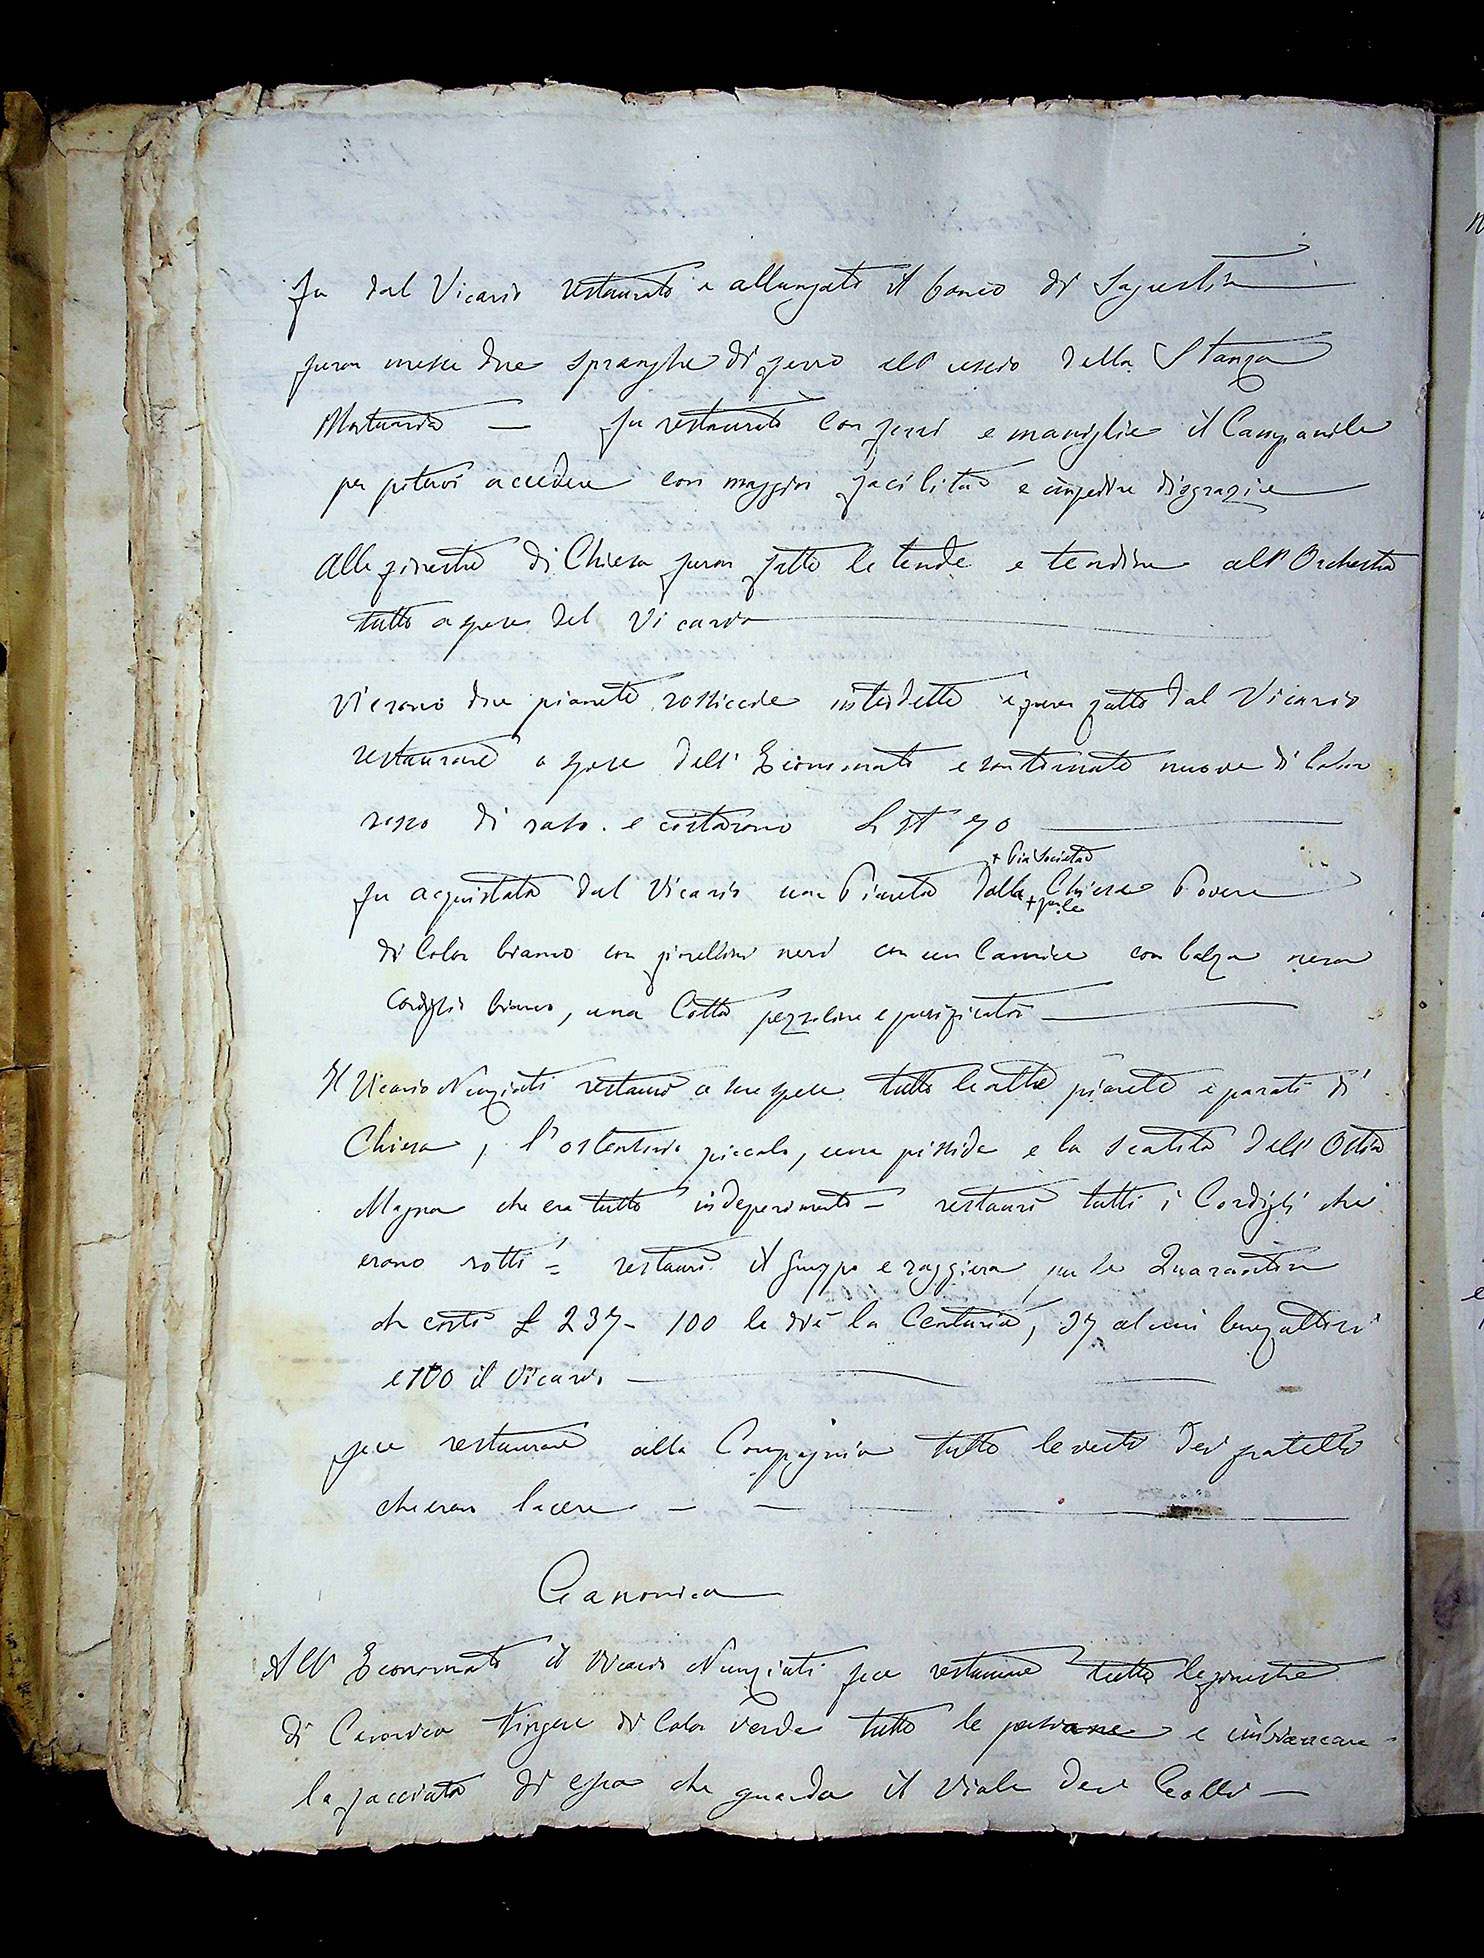 fu dal Vicario restaurato e allungato il banco di Sagrestia
furon messe due spranghe di ferro all'uscio della Stanza
Mortuaria — fu restaurato con ferri e maniglie il Campanile
per potervi accedere con maggior facilità e impedire disgrazie
Alle finestre di Chiesa furon fatte le tende e tendine all'Orchestra
tutto a spese del Vicario
Vi erano due pianete rossiccie interdette e furon fatte dal Vicario
restaurare a spese dell'Economato e son tornate nuove di Color
rosso di raso. e costarono L it 70
+ Pia Società
fu acquistata dal Vicario una Pianeta dalla Chiese Povere
+ per le
di Color bianco con giorellini neri con un Camice con balza nera
Cordiglio bianco, una Cotta pezzoline e purificatoi
Il Vicario Nunziati restaurò a sue spese tutte le altre pianete e parati di
Chiesa, l'ostensorio piccolo, una pisside e la scatola dell'Ostia
Magna che era tutto in deperimento — restaurò tutti i Cordigli che
erano rotti = restaurò il Gruppo e raggiera per le Quarantore
che costò L 237 - 100 le diè la Centuria, 37 alcuni benefattori
e 100 il Vicario
fece restaurare alla Compagnia tutte le vesti dei fratelli
che eran lacere — —
Canonica
All'Economato il Vicario Nunziati fece restaurare tutte le finestre
di Canonica tingere di Color verde tutte le persiane e imbiancare
la facciata di essa che guarda il Viale dei Colli —